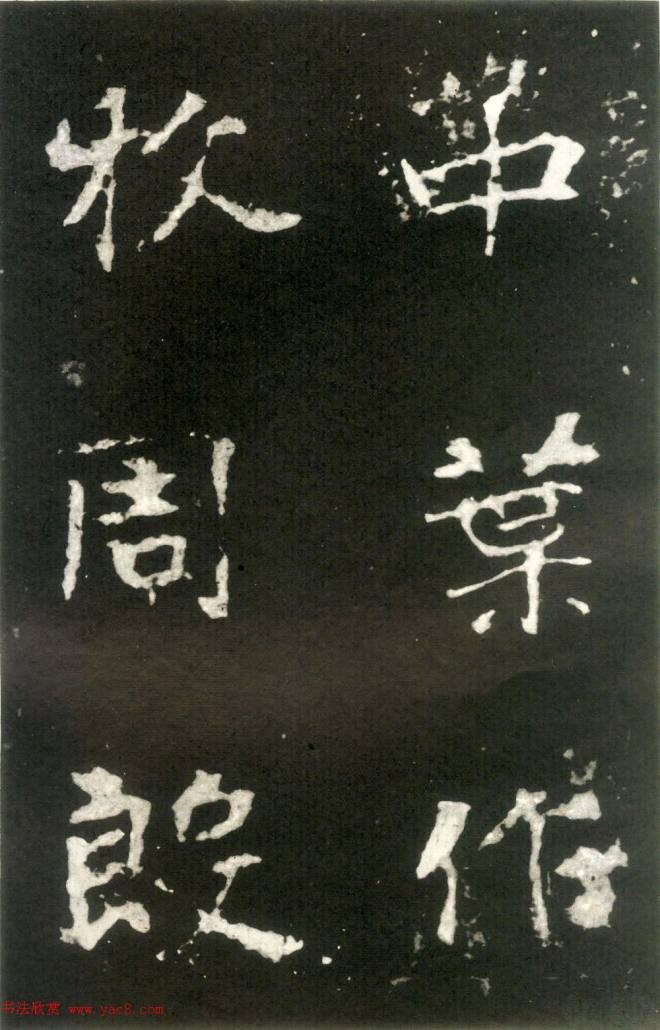 中葉作
牧周殷
书法欣赏 www.yac8.com